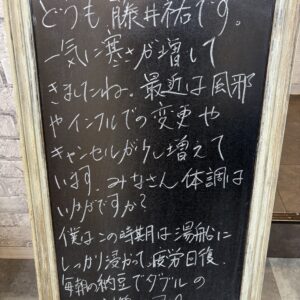 どうも藤井祐です。
一気に寒さが増して
きましたね。最近は風邪
やインフルでの変更や
キャンセルが少し増えて
います。みなさん体調は
いかがですか?
僕はこの時期は湯船に
しっかり浸かって、疲労回復、
毎朝の納豆でダブルの